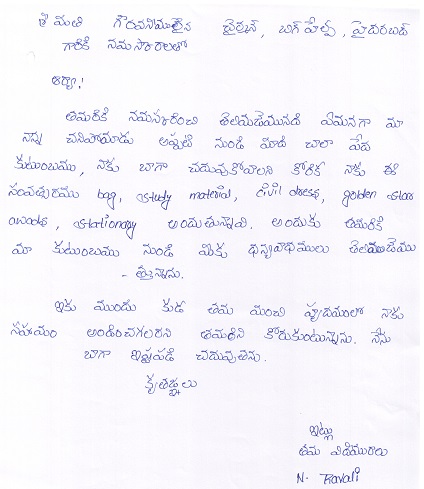 శ్రీ మతి గౌరవనీయులైన చైర్మన్, బిగ్ హెల్ప్, హైదరబద్
గారికి నమస్కారాలతో
ఆర్యా!
తమరికి నమస్కరించి తెలియజేయునది ఏమనగా మా
నాన్న చనిపోయాడు అప్పటి నుండి మాది చాలా పేద
కుటుంబము, నాకు బాగా చదువుకోవాలని కోరిక నాకు ఈ
సంవత్సరము bag, study material, civil dress, golden star
awads, stationary అందుతున్నావి. అందుకు తమరికి
మా కుటుంబము నుండి మీకు ధన్యవాధములు తెలియజేయు
- తున్నాను.
ఇకు ముందు కుడ తమ మంచి హృదయంలో నాకు
సహయం అందించగలరని తమరిని కోరుకుంటున్నాను. నేను
బాగా ఇష్టపడి చదువుతాను.
కృతజ్ఞలు
ఇట్లు
తమ విదేయురాలు
N. Ravali